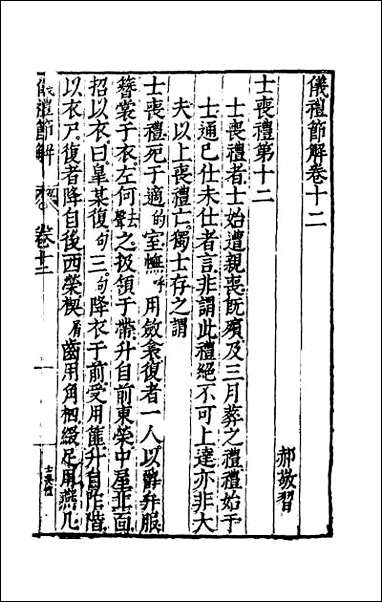 儀禮節解卷十二
郝敬習
士喪禮第十二
士喪禮者士始遭親喪既殯及三月葬之禮禮始于
士通已仕未仕者言非謂此禮絕不可上達亦非大
夫以上喪禮亡獨士存之謂
士喪禮死于適的室幠呼用斂衾復者一人以爵弁服
簪裳于衣左何去聲之扱領于帶升自前東榮中屋北面
招以衣曰皋某復句三句降衣于前受用篋升自阼階
以衣尸復者降自後西榮楔屑齒用角柶綴足用燕几
儀禮節解 卷十二 一 士喪禮